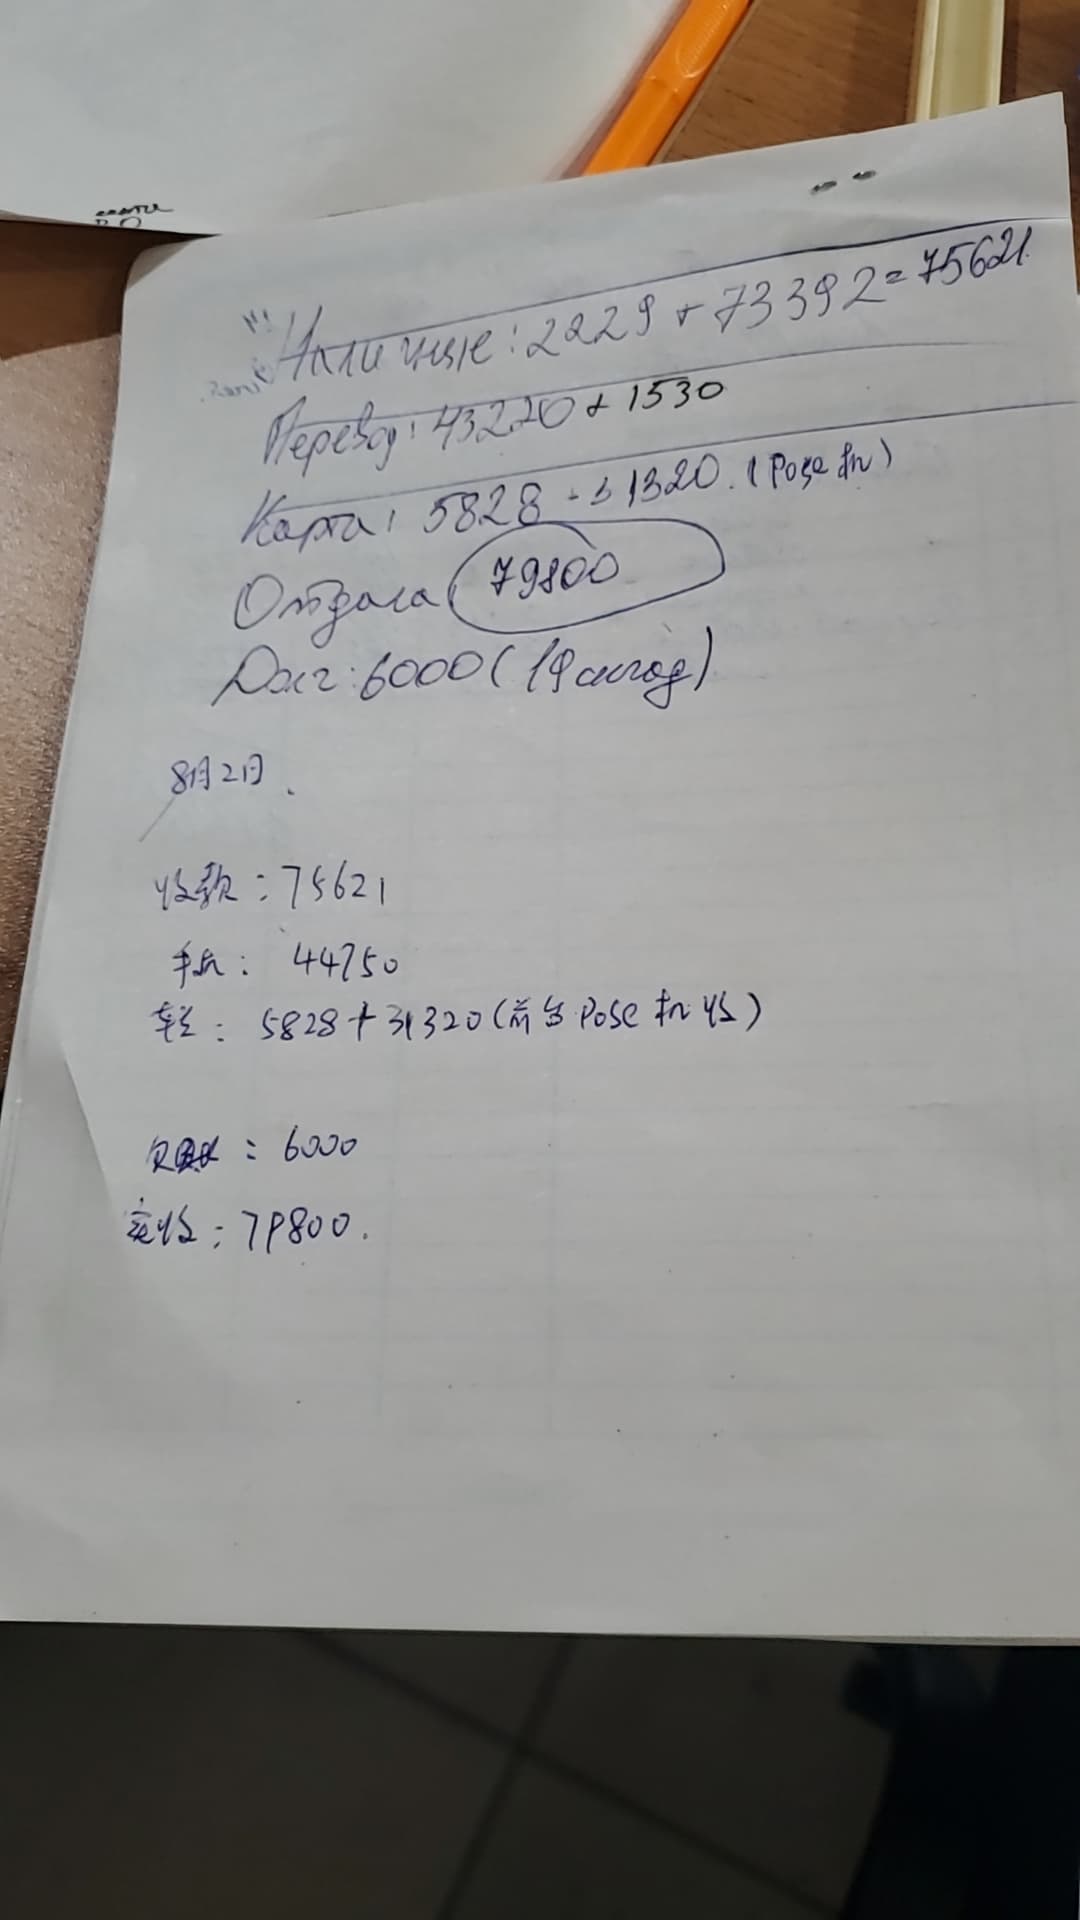 Наличные: 2229 + 73392 = 75621
Перевод: 43220 + 1530
Карта: 5828 + 31320. (Pose
Отдала 79800
Долг: 6000 (19
8月2日.
收款: 75621
44750
卡: 5828 + 31320 (前台 Pose 机 收)
欠 : 6000
实收: 79800.